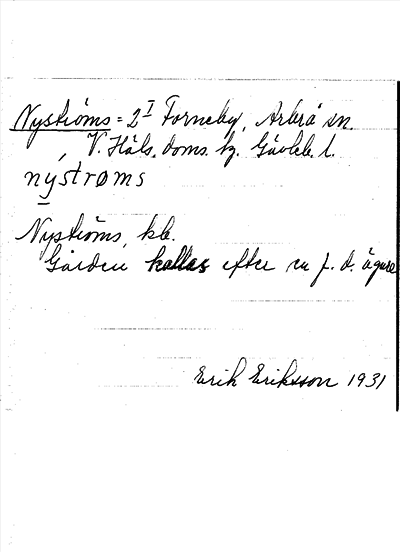 Nyströms = 2¹ Forneby, Arbrå sn.
V. Häls. doms. hg. Gävleb. l.
nýstrøms
Nyströms, kb.
Gården kallas efter en f. d. ägare
Erik Eriksson 1931